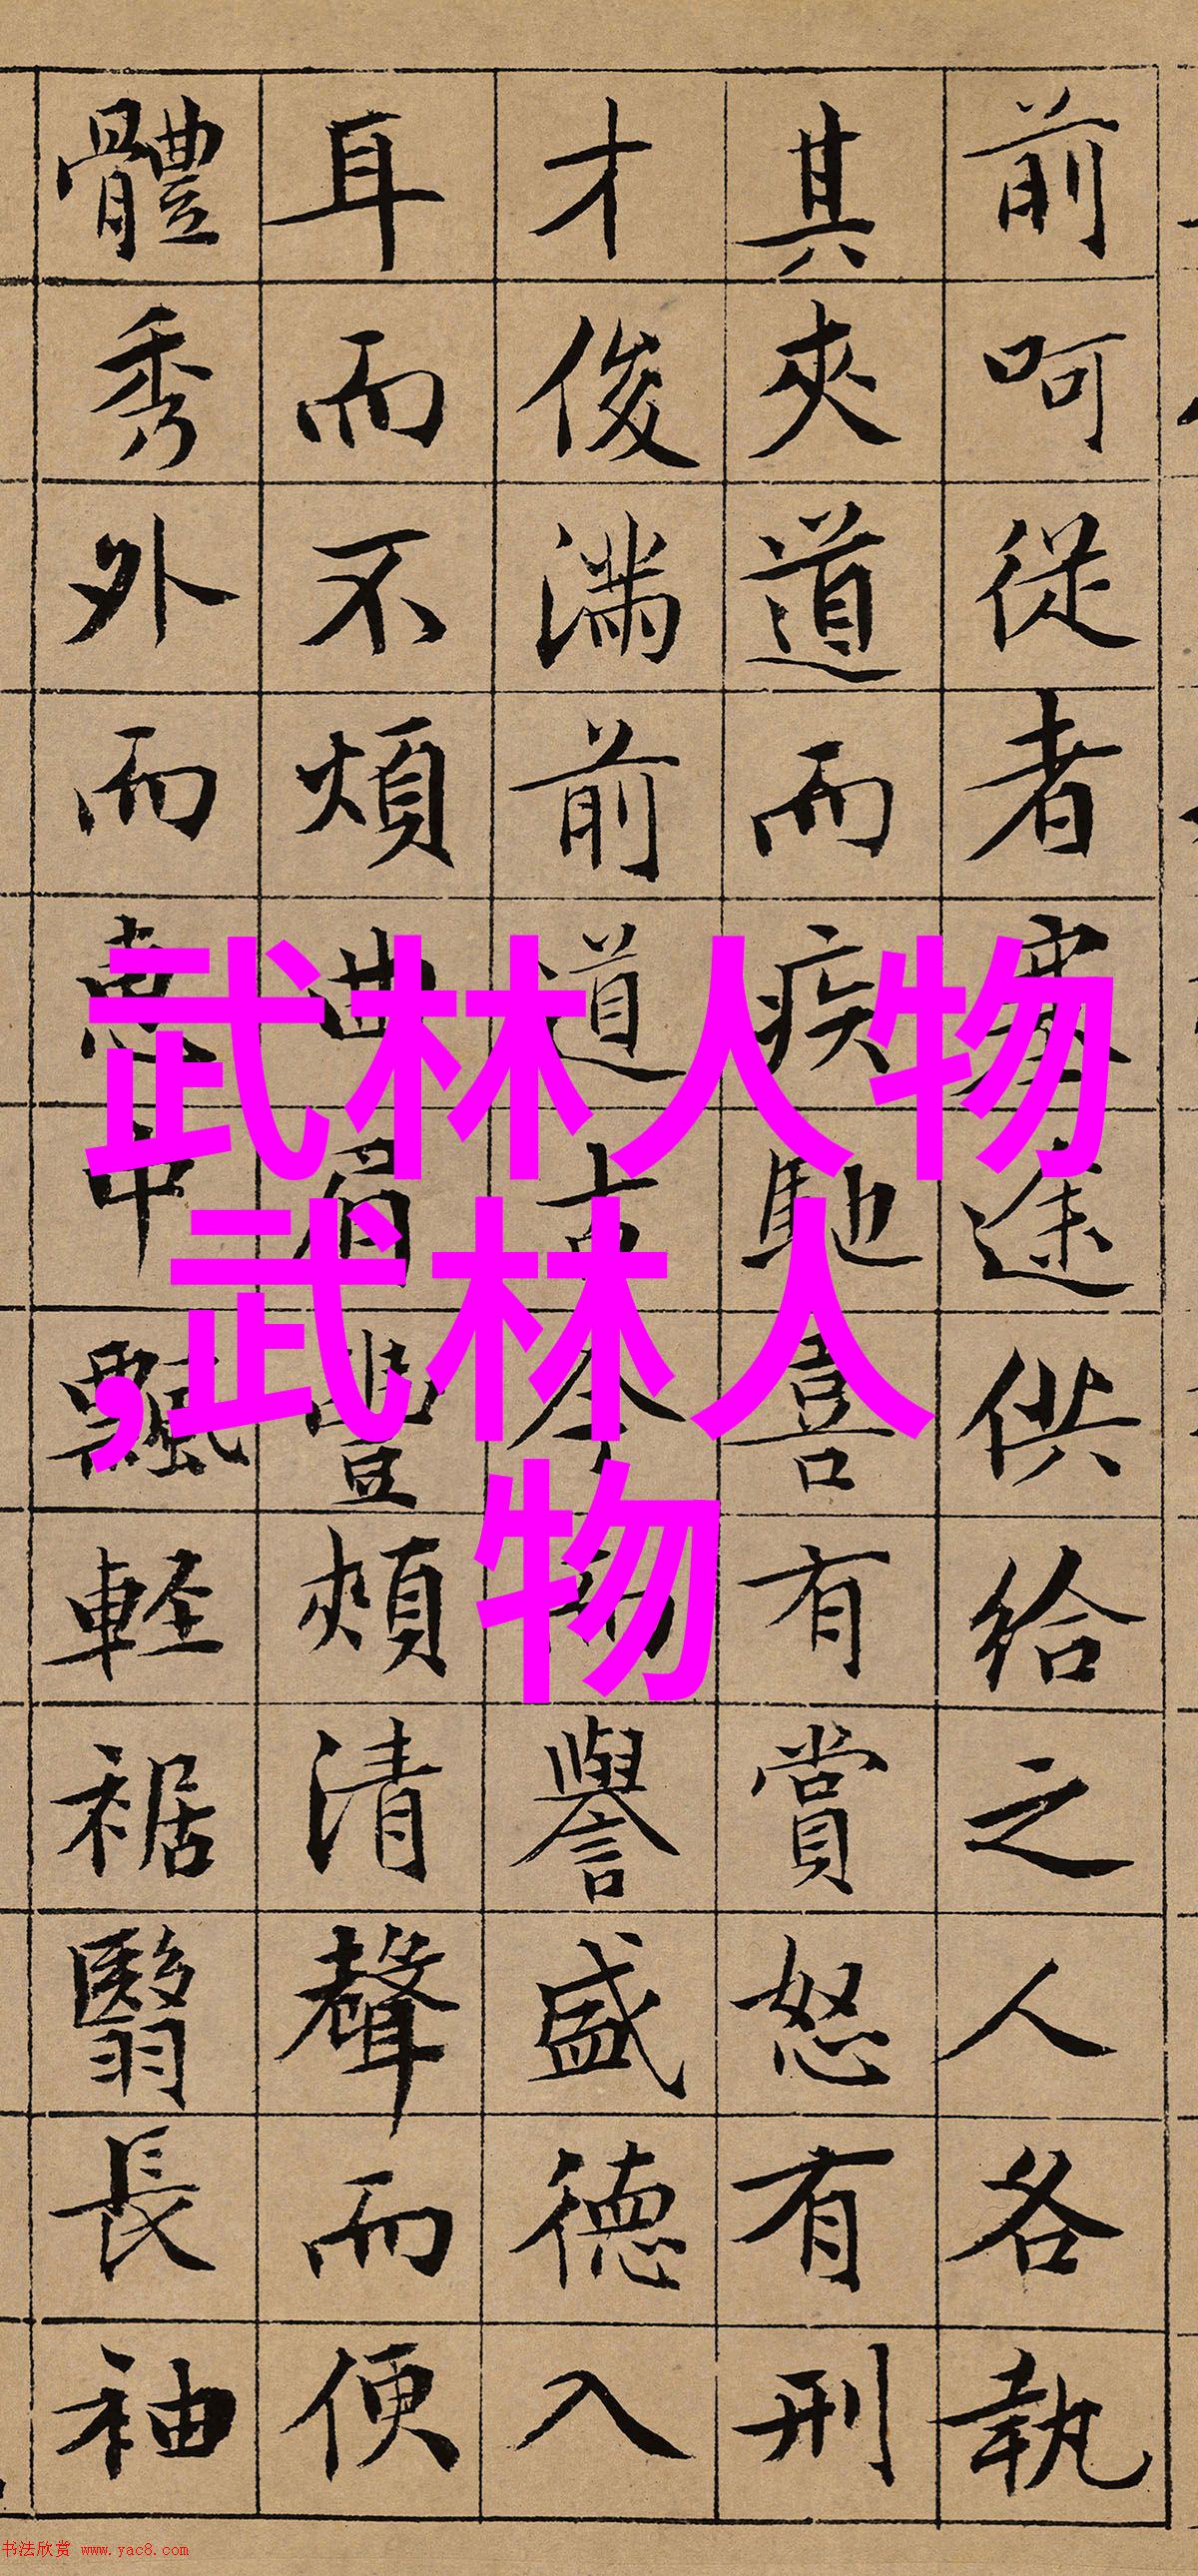 前呵從者塞途供給之人各執
其夾道而疾馳喜有賞怒有刑
才俊滿前道古今而譽盛德入
耳而不煩曲眉豐頰清聲而便
體秀外而惠中飄輕裾翳長袖
武林人物
,武林人
物
书法欣赏 www.yac8.com